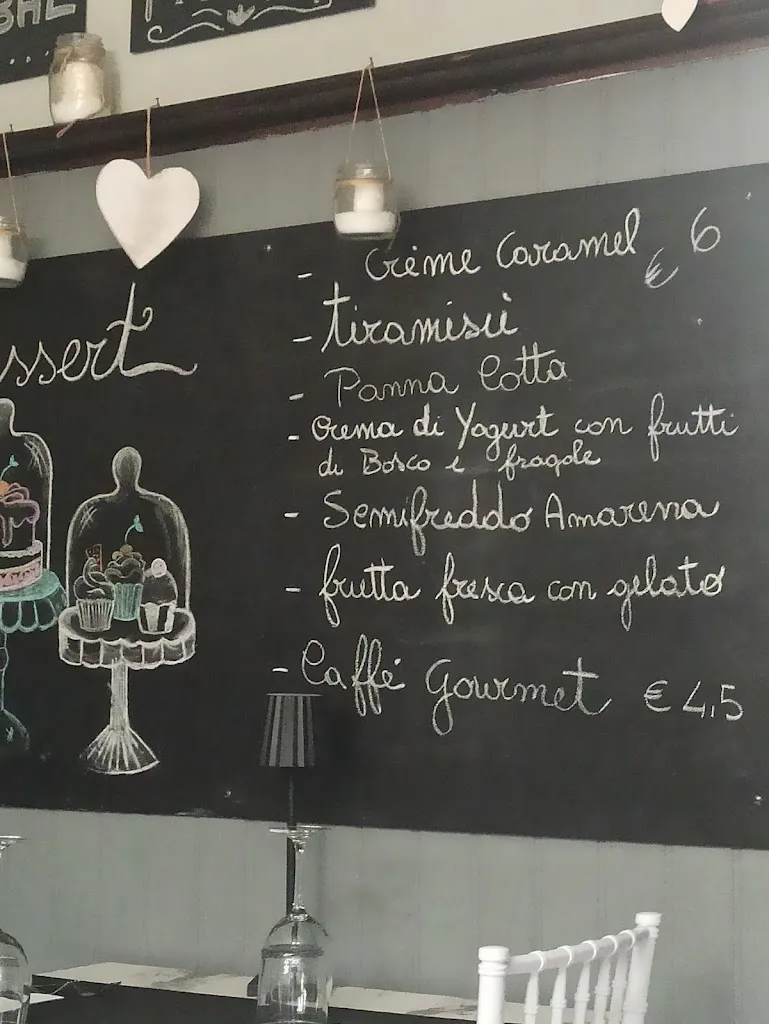 ssert
- Crème Caramel € 6
- tiramisù
- Panna Cotta
- Crema di Yogurt con frutti
di Bosco e fragole
- Semifreddo Amarena
- frutta fresca con gelato
- Caffé Gourmet € 4,5